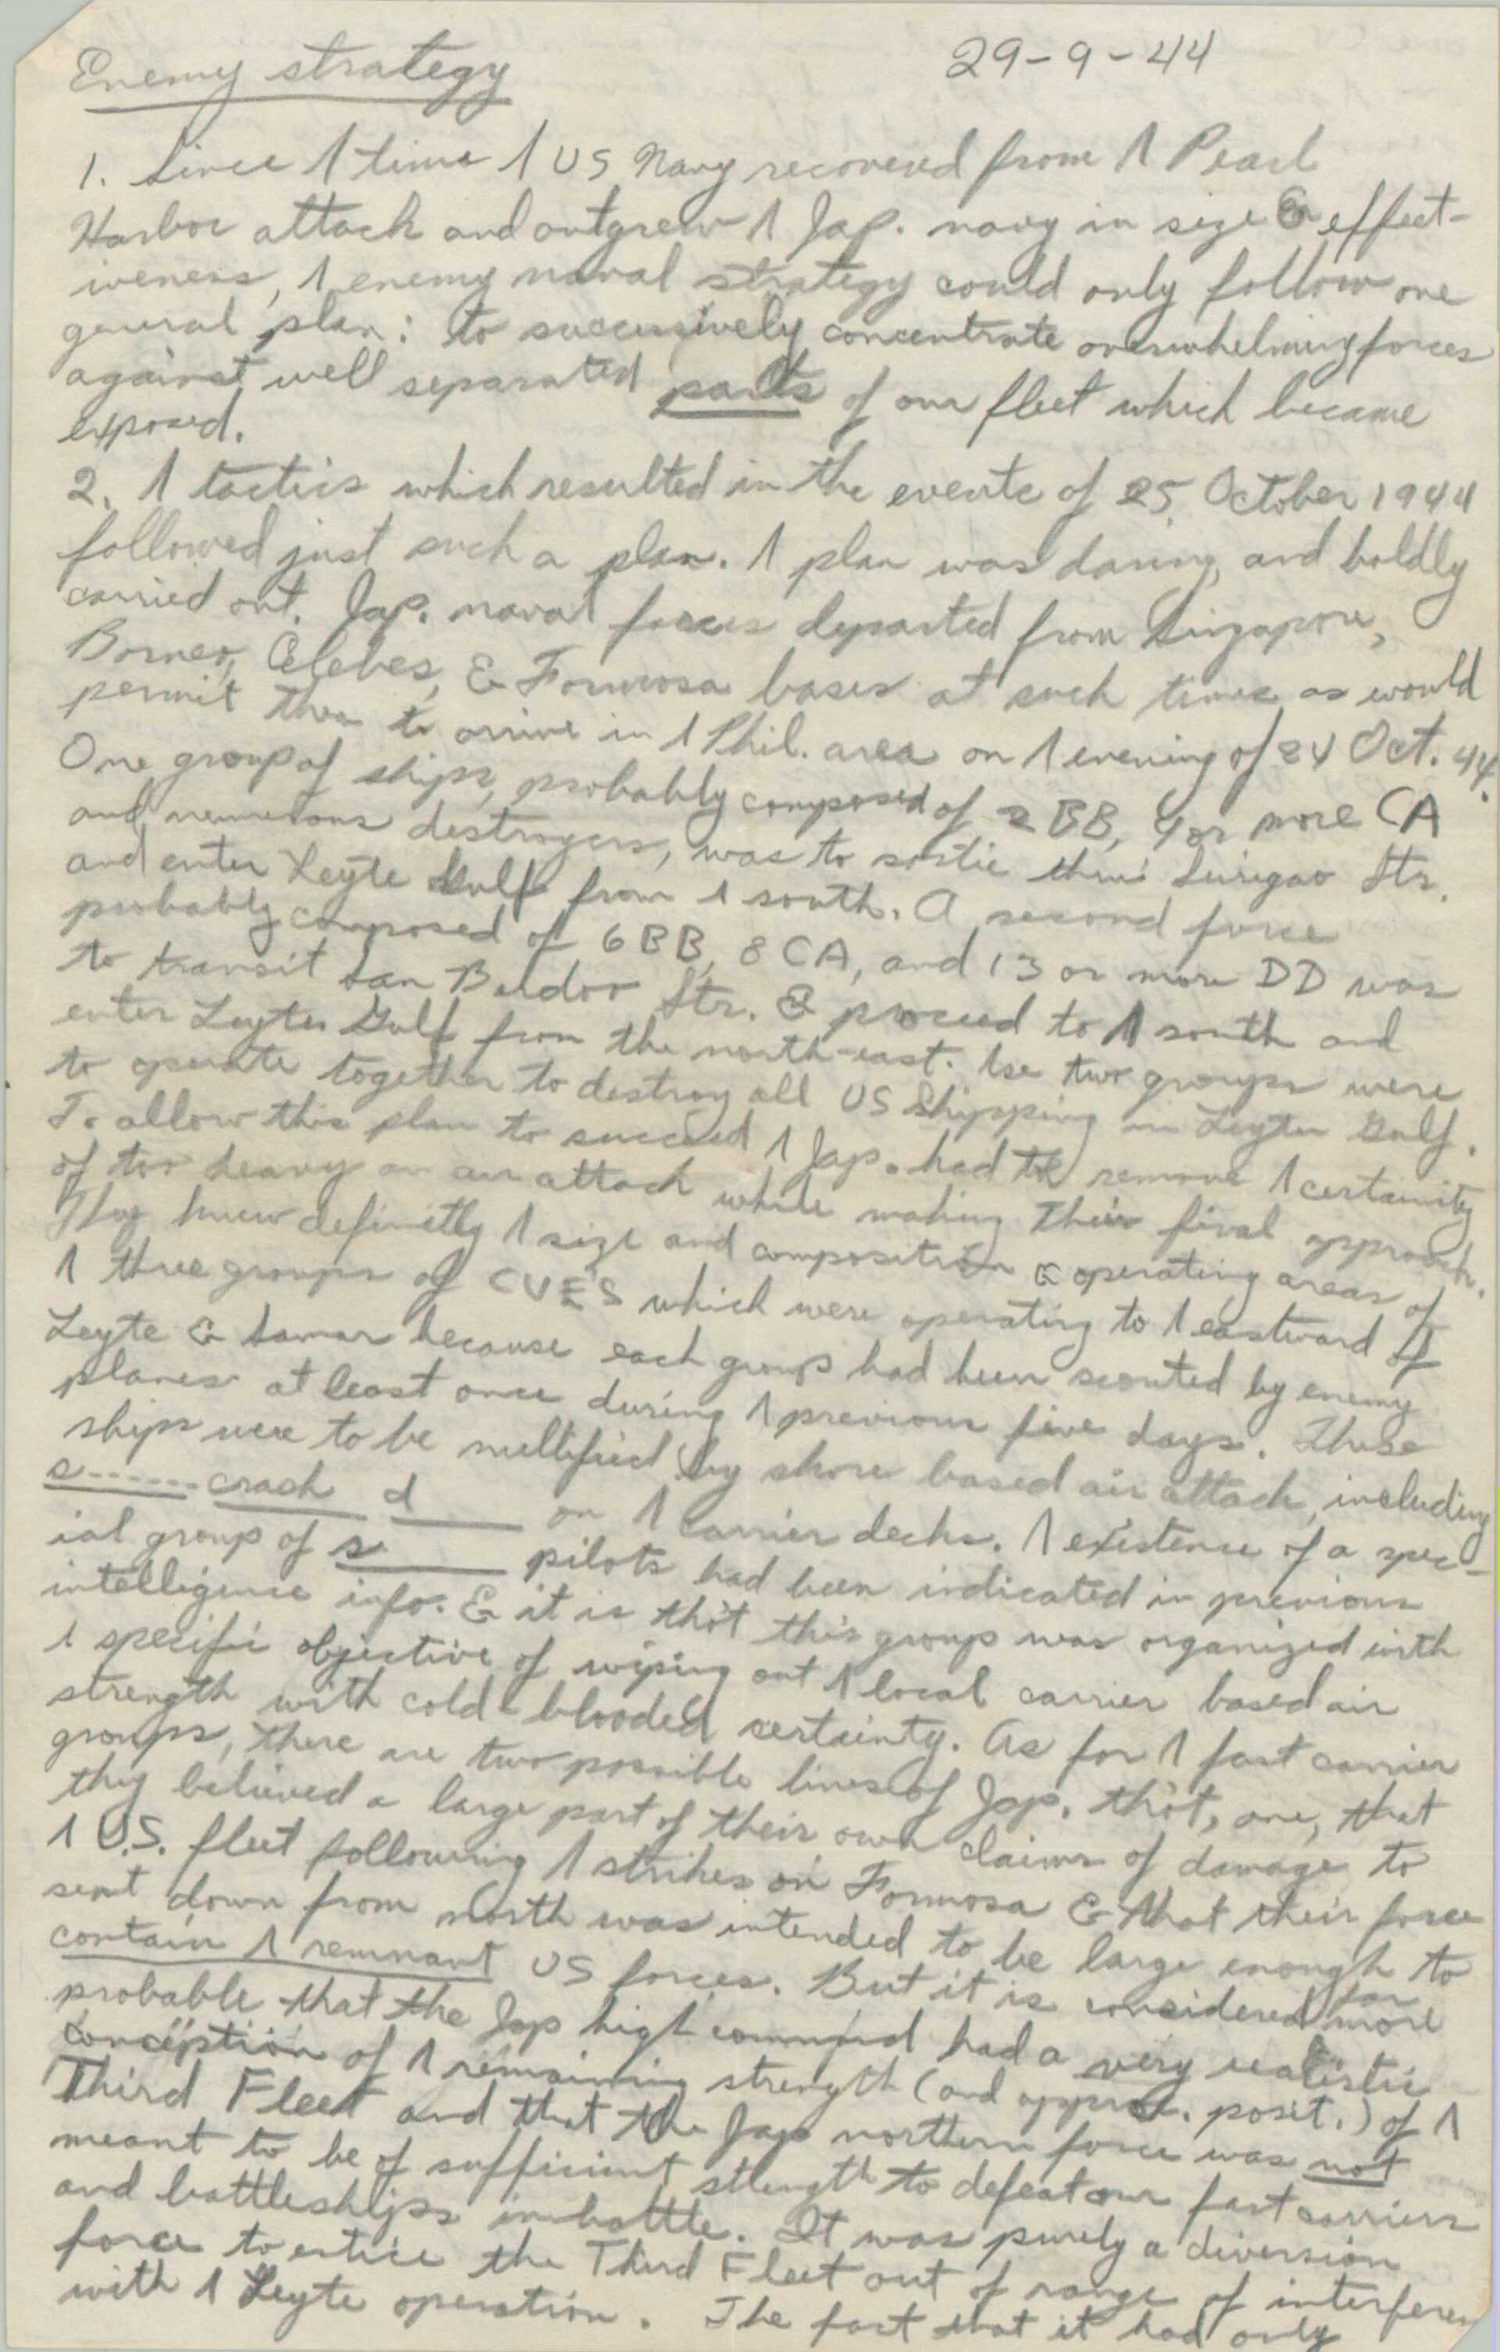 Enemy strategy
29-9-44
1. Since 1 time 1 US Navy recovered from 1 Pearl
Harbor attack and outgrew 1 Jap. navy in size & effect-
iveness, 1 enemy naval strategy could only follow one
general plan: to successively concentrate overwhelming forces
against well separated parts of our fleet which became
exposed.
2. 1 tactics which resulted in the events of 25 October 1944
followed just such a plan. 1 plan was daring, and boldly
carried out. Jap. naval forces departed from Singapore,
Borneo, Celebes, & Formosa bases at such times as would
permit them to arrive in 1 Phil. area on 1 evening of 24 Oct. 44.
One group of ships, probably composed of 2 BB, 4 or more CA
and numerous destroyers, was to sortie thru Surigao Str.
and enter Leyte Gulf from 1 south. A second force
probably composed of 6 BB, 8 CA, and 13 or more DD was
to transit San Str. & proceed to 1 south and
enter Leyte Gulf from the north-east. two groups were
to operate together to destroy all US shipping in Leyte Gulf.
To allow this plan to succeed 1 Jap. had to remove 1 certainity
of too heavy an air attack while making their final approach.
They knew definitly 1 size and composition & operating areas of
1 three groups of CVE'S which were operating to 1 eastward of
Leyte & Samar because each group had been scouted by enemy
planes at least once during 1 previous five days. These
ships were to be nullified by shore based air attach, including
s------ crash d____ on 1 carrier decks. 1 existence of a spec-
ial group of s____ pilots had been indicated in previous
intelligence info. & it is tho't this group was organized with
1 specific objective of wiping out 1 local carrier based air
strength with cold-blooded certainty. As for 1 fast carrier
groups, there are two possible lines of Jap. tho't, one, that
they believed a large part of their own claims of damage to
1 U.S. fleet following 1 strikes on Formosa & that their force
sent down from north was intended to be large enough to
contain 1 remnant US forces. But it is considered far more
probable that the Jap high command had a very realistic
conception of 1 remaining strength (and approx. posit.) of 1
Third Fleet and that the Jap northern force was not
meant to be of sufficient strength to defeat our fast carriers
and battleships in battle. It was purely a diversion
force to entice the Third Fleet out of range of interferen
with 1 Leyte operation. The fact that it had only